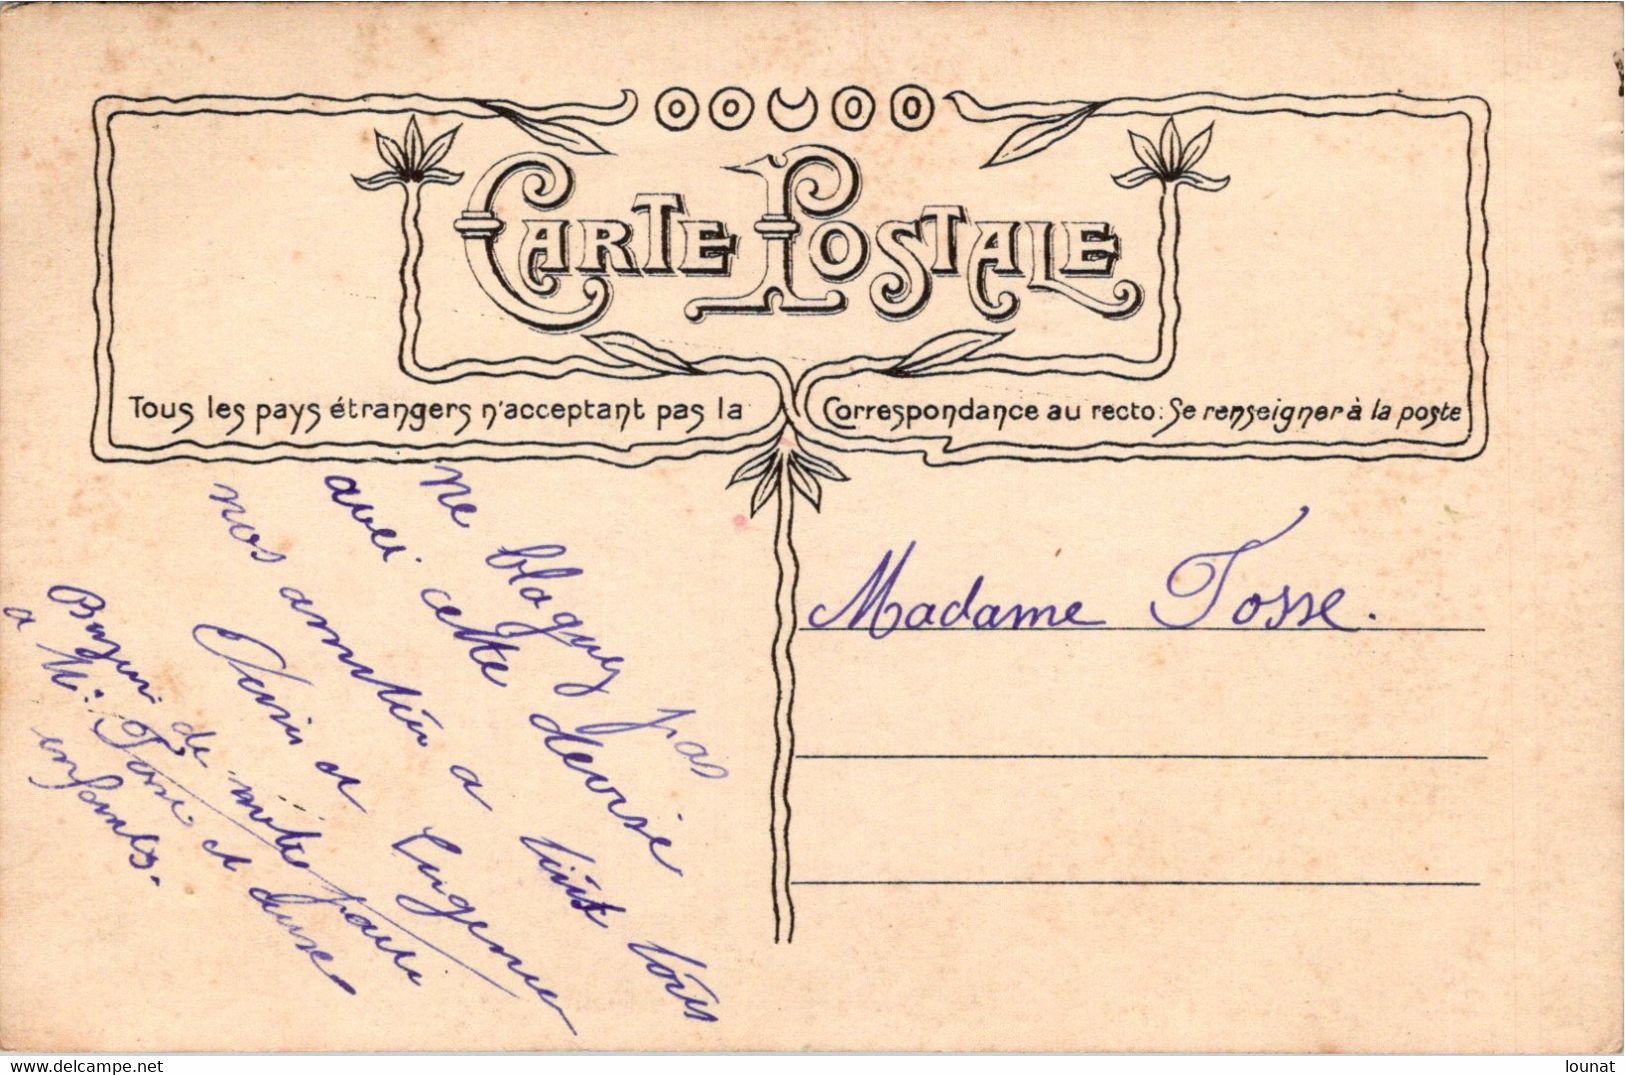 CARTE POSTALE
Tous les pays étrangers n'acceptant pas la Correspondance au recto: Se renseigner à la poste
ne blaguez pas
avec cette devise
nos amitiés a tous
tous
Denis et Eugenie
de notre part
a Mr Tosse et
enfants.
Madame Tosse.
www.delcampe.net
lounat